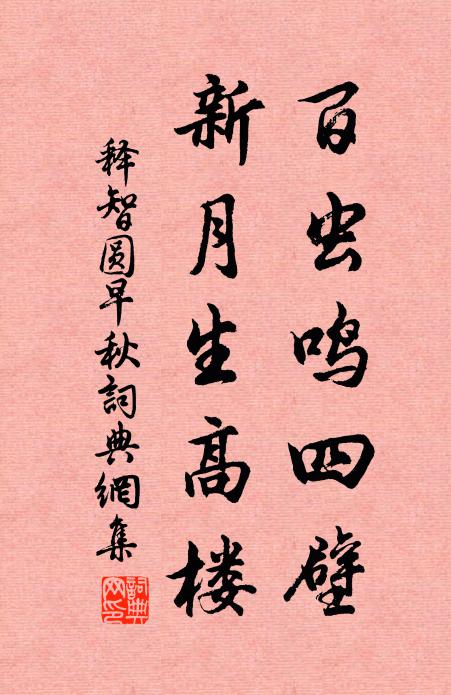 百虫鸣四壁
新月生高楼
释智圆早秋詞典網集
詞典网印